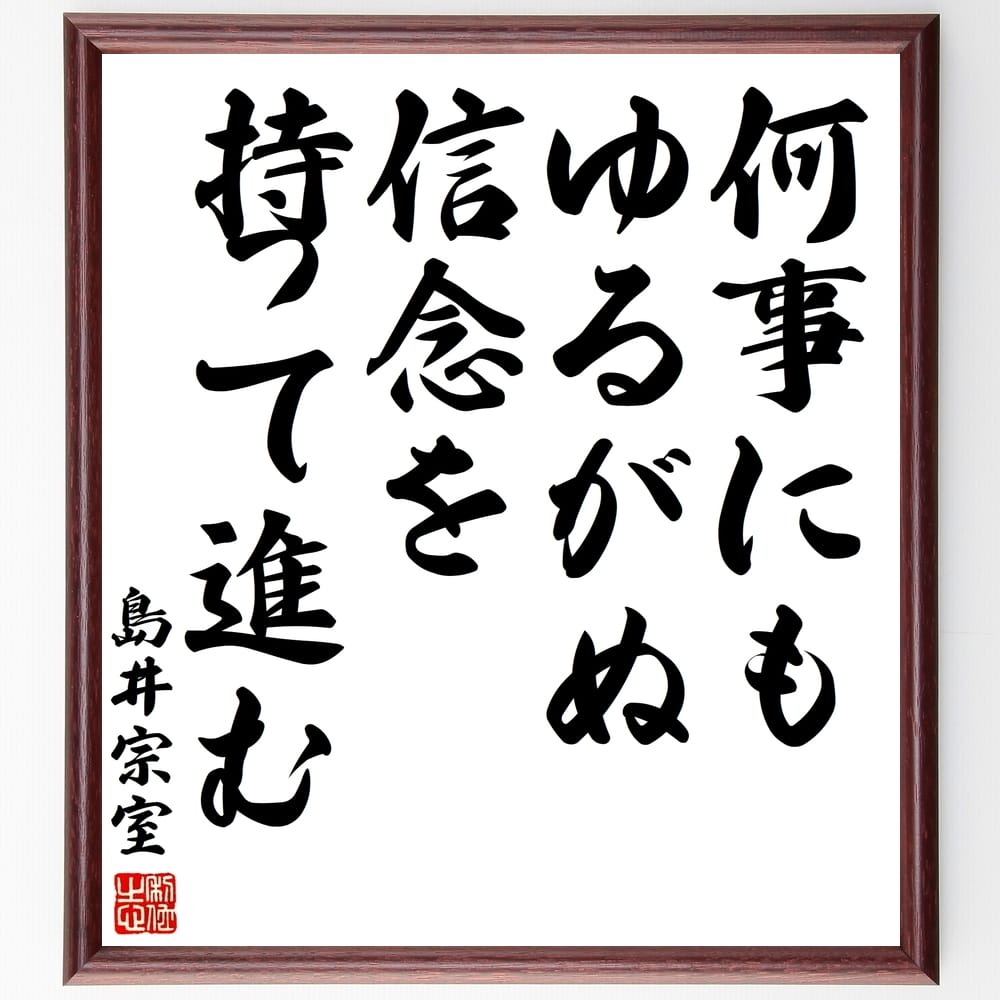 何事にも
ゆるがぬ
信念を
持って進む
島井宗室